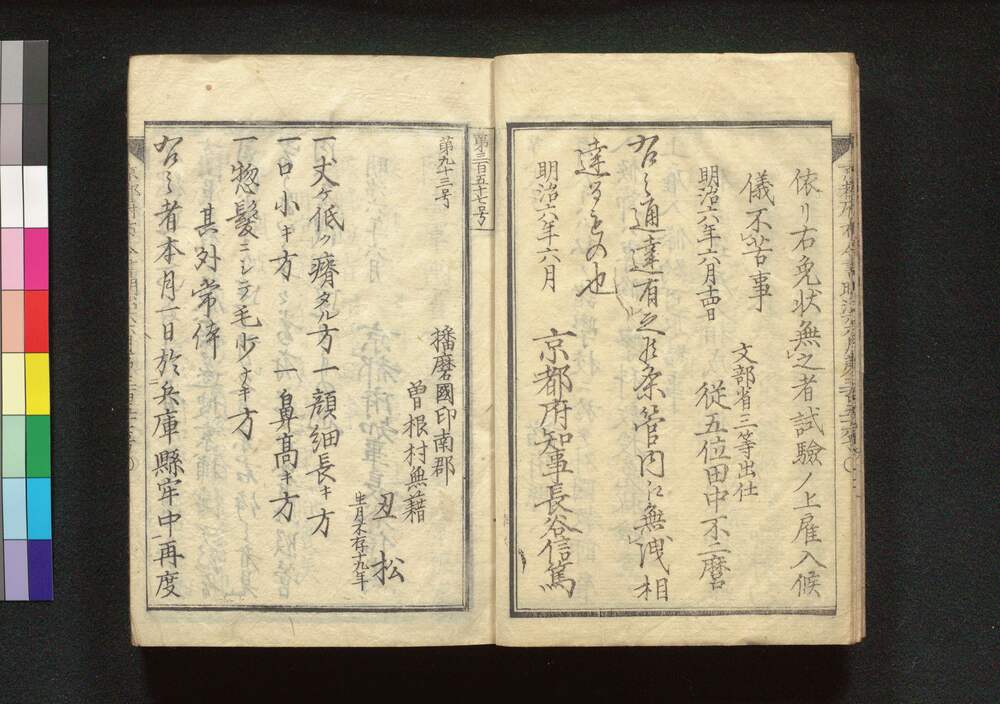 依リ右免状無之者試驗ノ上雇入候
儀不苦事
文部省三等出仕
明治六年六月十四日　從五位田中不二麿
右之通達有之候条管内江無洩相
達るもの也
明治六年六月　京都府知事長谷信篤
第三百五十七号
第九十三号
播磨國印南郡
曽根村無藉
丑松
生月不存十九年
一丈ケ低ク瘠タル方一顔細長キ方
一口小キ方　一鼻高キ方
一惣髪ニシテ毛少ナキ方
其外常体
右之者本月一日於兵庫縣牢中再度